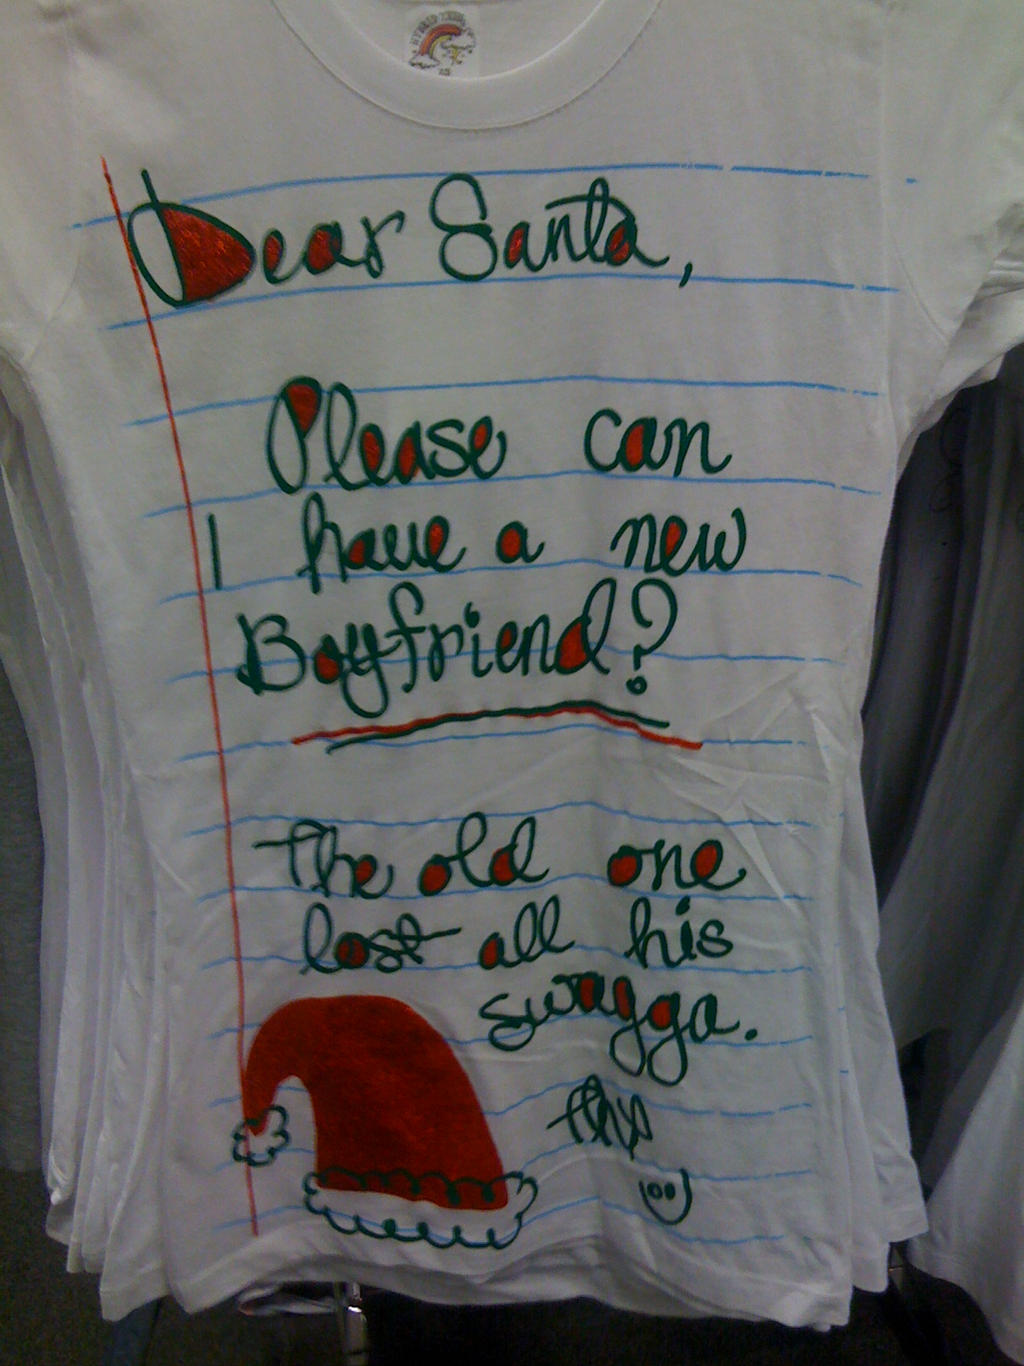 Dear Santa,
Please can
I have a new
Boyfriend?
The old one
lost all his
swagga.
thx